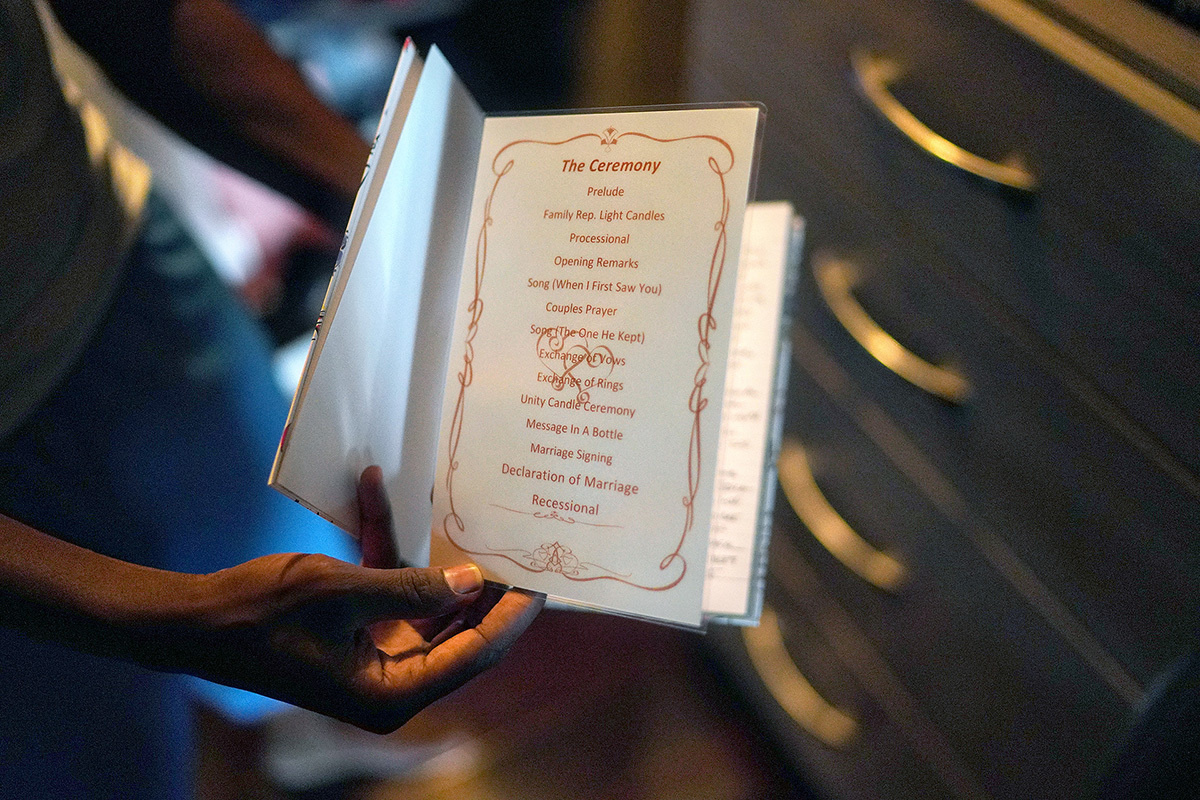 The Ceremony
Prelude
Family Rep. Light Candles
Processional
Opening Remarks
Song (When I First Saw You)
Couples Prayer
Song (The One He Kept)
Exchange of Vows
Exchange of Rings
Unity Candle Ceremony
Message In A Bottle
Marriage Signing
Declaration of Marriage
Recessional